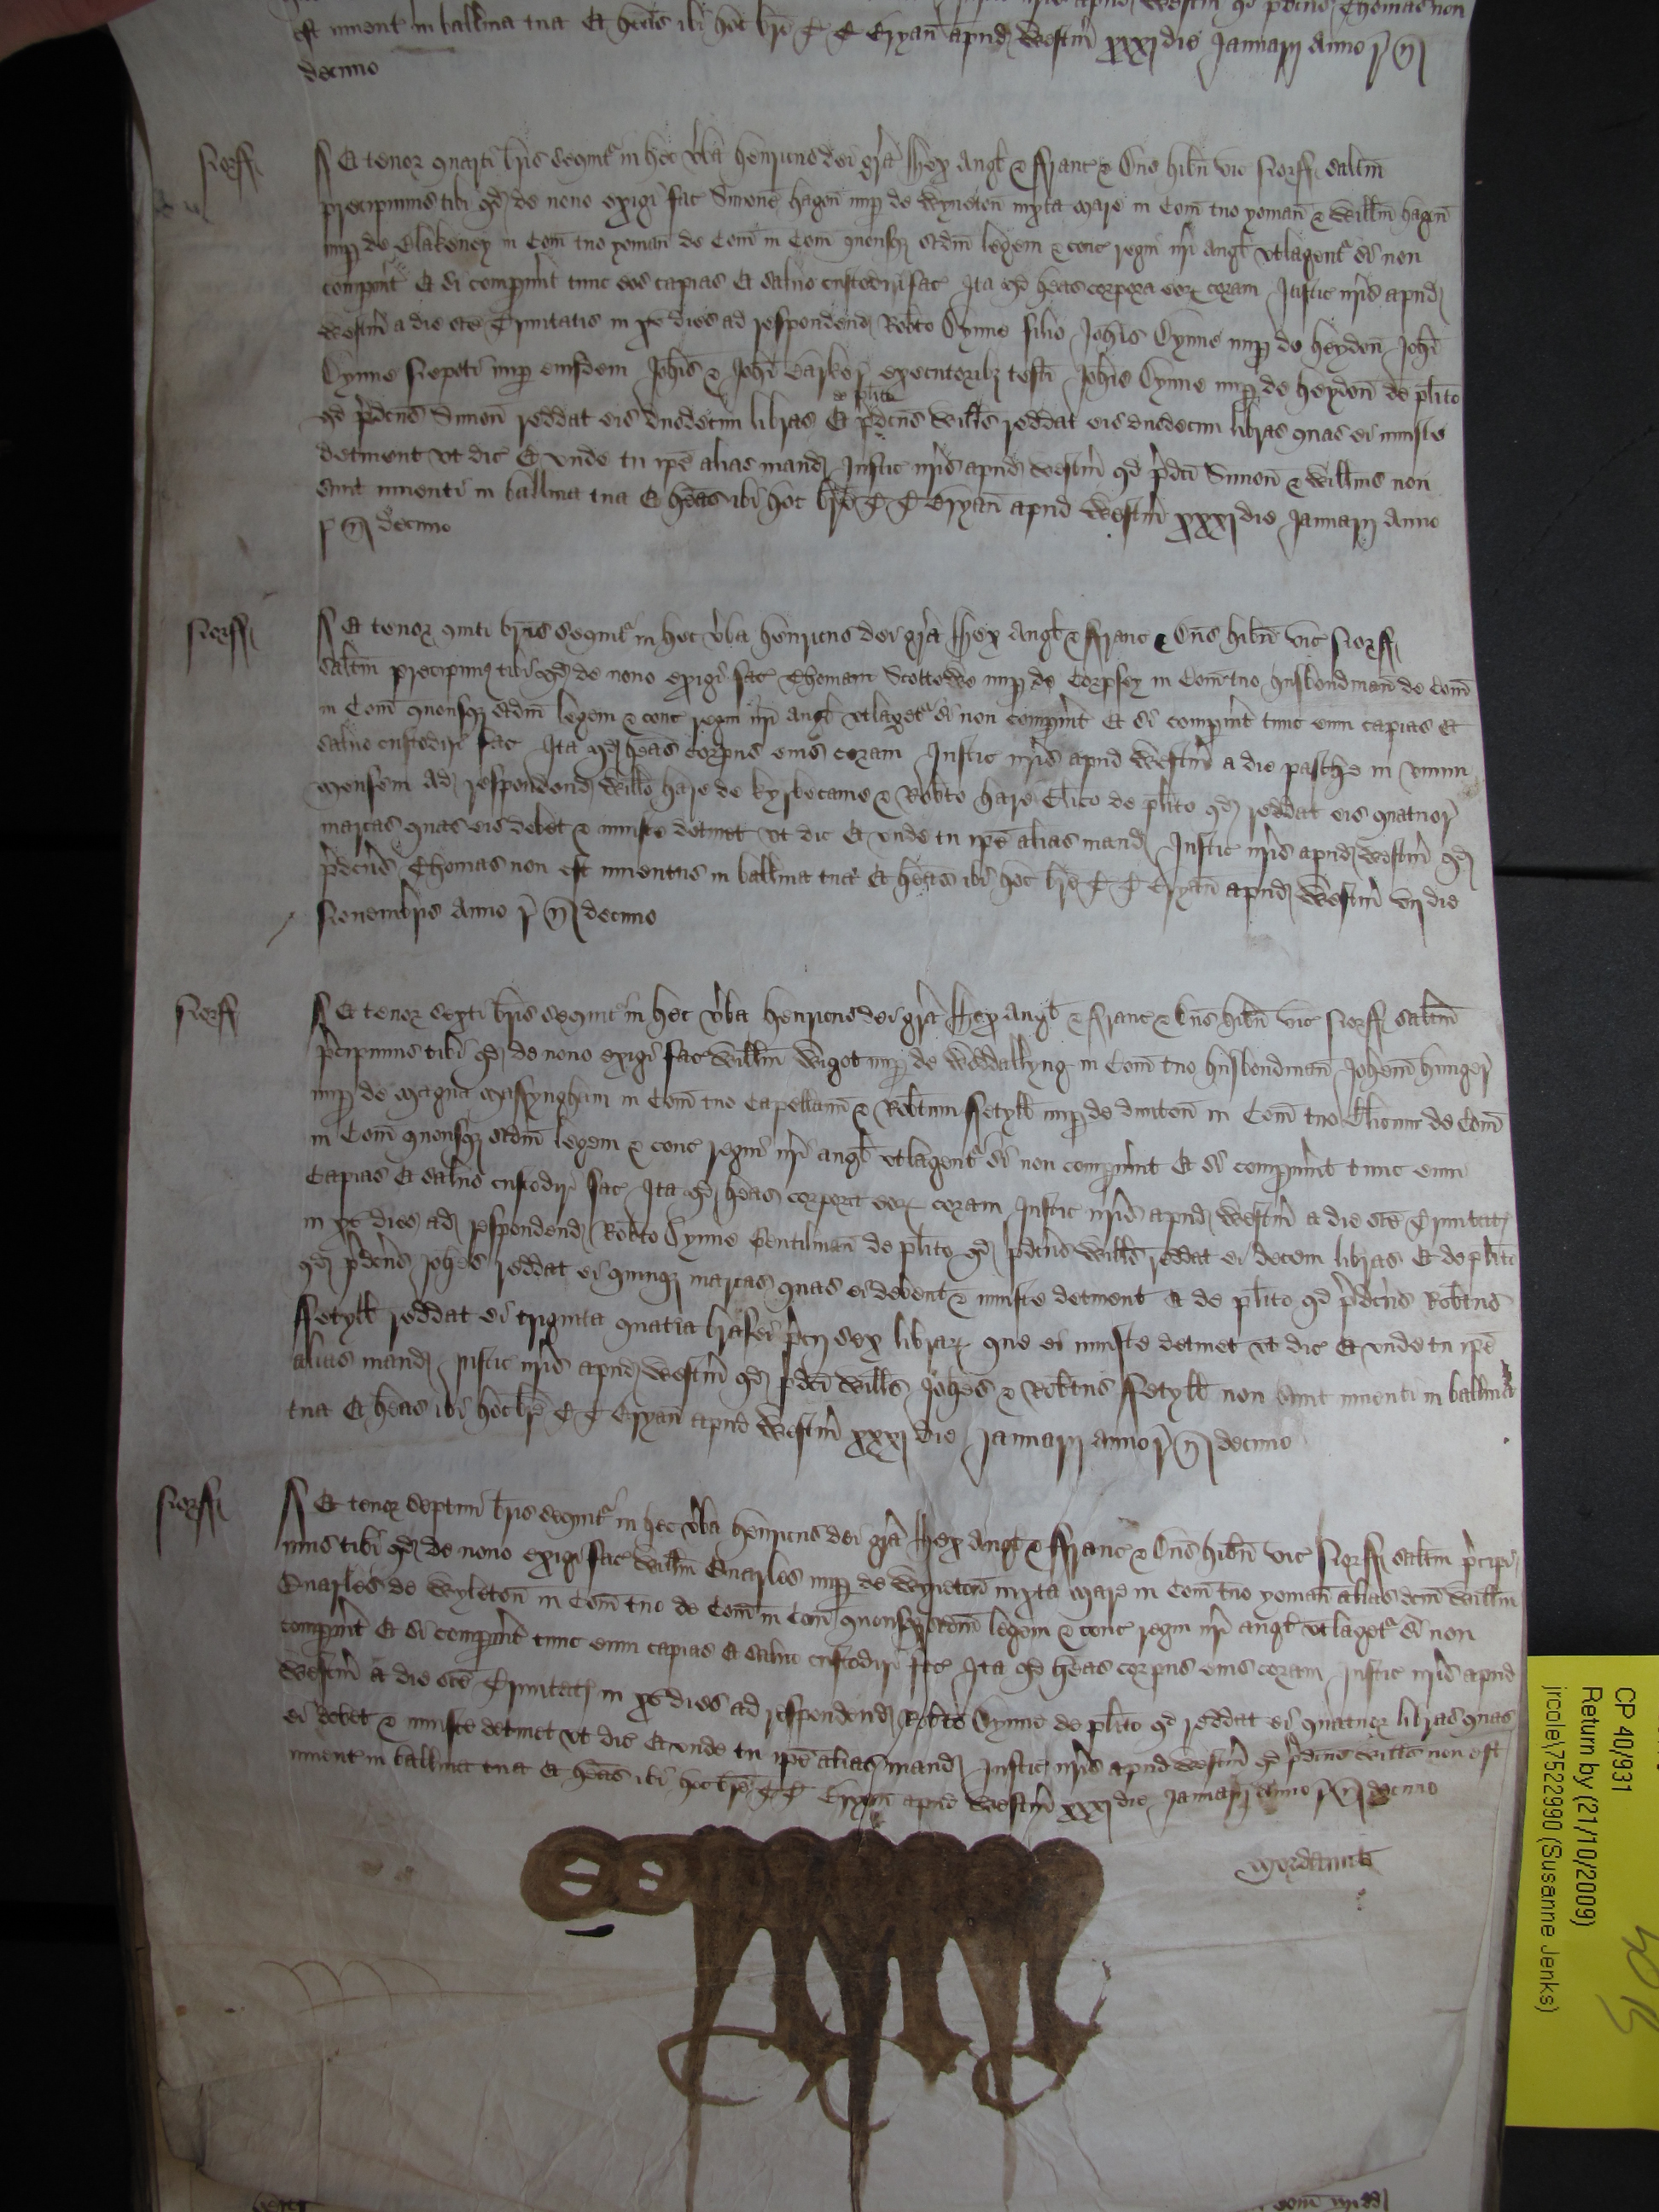 est invent in balliva tua Et heas ibi hoc bre T T Bryan apud Westm xxxj die Januarij Anno r n
decimo
Norff
Et tenor quarti bris sequit in hec vba Henricus dei gra Rex Angl & Franc & Dns hibn vic Norff saltm
precipimus tibi qd de novo exigi fac Simone hagon nup de Wyveton iuxta mare in Com tuo yoman & Willm hagon
nup de Blakeney in Com tuo yoman de Com in Com quousq scdm legem & cons regni nri Angl vtlagent si non
compint Et si compint tunc eos capias Et salvo custodiri fac Ita qd heas corpora eor coram Justic nris apud
Westm a die sce Trinitatis in xv dies ad respondend Robto Dynne filio Johis Dynne nup de heydon Johi
Dynne Nepoti nup eiusdem Johis & Johi Barker executorib testi Johis Dynne nup de heydon de plito
qd pdcus Simon reddat eis duodecim libras Et de plito pdcus Wills reddat eis duodecim libras quas ei iniuste
detinent vt dic Et vnde tu ipe alias mand Justic nris apud Westm qd pdci Simon & Willms non
sunt inventi in balliva tua Et heas ibi hoc bre T T Bryan apud Westm xxxj die Januarij Anno
r n decimo
Norff
Et tenor quinti bris sequit in hec vba Henricus dei gra Rex Angl & Franc & Dns hibn vic Norff
saltm precipimus tibi qd de novo exigi fac Thomam Scottowe nup de Corpsty in Com tuo husbondman de Com
in Com quousq scdm legem & cons regni nri Angl vtlaget si non compint Et si compint tunc eum capias Et
salvo custodiri fac Ita qd heas corpus eius coram Justic nris apud Westm a die pasche in vnum
mensem Ad respondend Willo hare de kyrbecame & Robto hare Clico de plito qd reddat eis quatuor
marcas quas eis debet & iniuste detinet vt dic Et vnde tu ipe alias mand Justic nris apud Westm qd
pdcus Thomas non est inventus in balliva tua Et heas ibi hoc bre T T Bryan apud Westm vij die
Novembris Anno r n decimo
Norff
Et tenor sexti bris sequit in hec vba Henricus dei gra Rex Angl & Franc & Dns hibn vic Norff saltm
pcipimus tibi qd de novo exigi fac Willm Wigot nup de Woddallyng in Com tuo husbondman Johem hunger
nup de magna Massyngham in Com tuo Capellanu & Robtum Fetyll nup de dunton in Com tuo Clicum de Com
in Com quousq scdm legem & cons regni nri angl vtlagent si non compint Et si compint tunc eum
Capias Et salvo custodiri fac Ita qd heas corpora eor coram Justic nris apud Westm a die sce Trinitat
in xv dies ad respondend Robto Dynne Gentilman de plito qd pdcus Wills reddat ei decem libras Et de plito
qd pdcus Johes reddat ei quinq marcas quas ei debent & iniuste detinent & de plito qd pdcus Robtus
Fetyll reddat ei triginta quarta brasei pcij sex librar que ei iniuste detinet vt dic Et vnde tu ipe
alias mand Justic nris apud Westm qd pdci Wills Johes & Robtus Fetyll non sunt inventi in balliva
tua Et heas ibi hoc bre T T Bryan apud Westm xxxj die Januarij Anno r n decimo
Norff
Et tenor septimi bris sequit in hec vba Henricus dei gra Rex Angl & Franc & Dns hibn vic Norff saltm pcipi
mus tibi qd de novo exigi fac Willm Quarles nup de Wyveton iuxta Mare in Com tuo yoman alias dcm Willm
Quarles de Wyveton in Com tuo de Com in Com quousq scdm legem & cons regni nri angl vtlaget si non
compint Et si compint tunc eum capias Et salvo custodiri fac Ita qd heas corpus eius coram Justic nris apud
Westm a die sce Trinitat in xv dies ad respondend Robto Dynne de plito qd reddat ei quatuor libras quas
ei debet & iniuste detinet vt dic Et vnde tu ipe alias mand Justic nris apud Westm qd pdcus Wills non est
invent in balliva tua Et heas ibi hoc bre T T Bryan apud Westm xxxj die Januarij Anno r n decimo
Mordaunt
CP 40/931
Return by (21/10/2009)
jrcole\7522990 (Susanne Jenks)